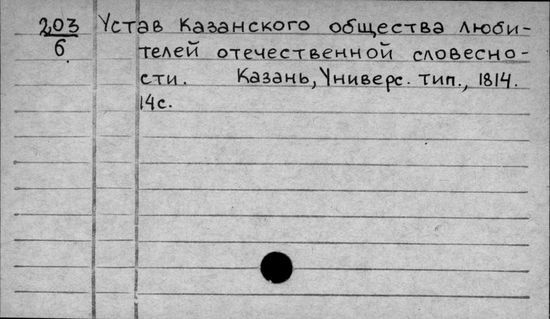 203 Устав Казанского общества люби-
6 телей отечественной словесно-
сти. Казань, Универс. тип., 1814.
14с.